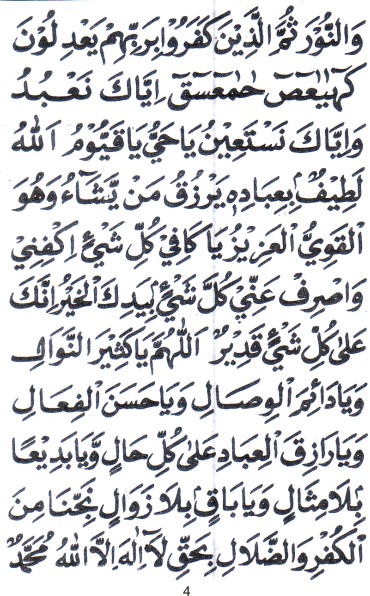 وَالنُّوْرَ ثُمَّ الَّذِيْنَ كَفَرُوْا بِرَبِّهِمْ يَعْدِلُوْنَ
كٓهٰيٰعٓصٓ حٰمٓعٓسٓقٓ اِيَّاكَ نَعْبُدُ
وَاِيَّاكَ نَسْتَعِيْنُ يَاحَيُّ يَاقَيُّوْمُ اَللّٰهُ
لَطِيْفٌۢ بِعِبَادِهٖ يَرْزُقُ مَنْ يَّشَآءُ وَهُوَ
الْقَوِيُّ الْعَزِيْزُ يَا كَافِيْ كُلِّ شَيْئٍ اِكْفِنِيْ
وَاصْرِفْ عَنِّيْ كُلَّ شَيْئٍ بِيَدِكَ الْخَيْرُ اِنَّكَ
عَلٰى كُلِّ شَيْئٍ قَدِيْرٌ اَللّٰهُمَّ يَاكَثِيْرَ النَّوَالِ
وَيَادَائِمَ الْوِصَالِ وَيَاحَسَنَ الْفِعَالِ
وَيَارَازِقَ الْعِبَادِ عَلٰى كُلِّ حَالٍ وَّيَابَدِيْعًا
بِلَامِثَالٍ وَيَابَاقٍ بِلَا زَوَالٍ نَجِّنَا مِنَ
الْكُفْرِ وَالضَّلَالِ بِحَقِّ لَآ اِلٰهَ اِلَّا اللّٰهُ مُحَمَّدٌ
4